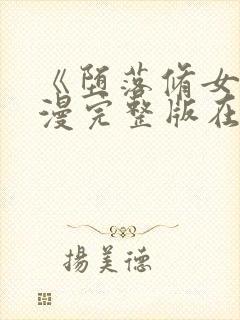 《堕落修女
漫完整版在
揚美德